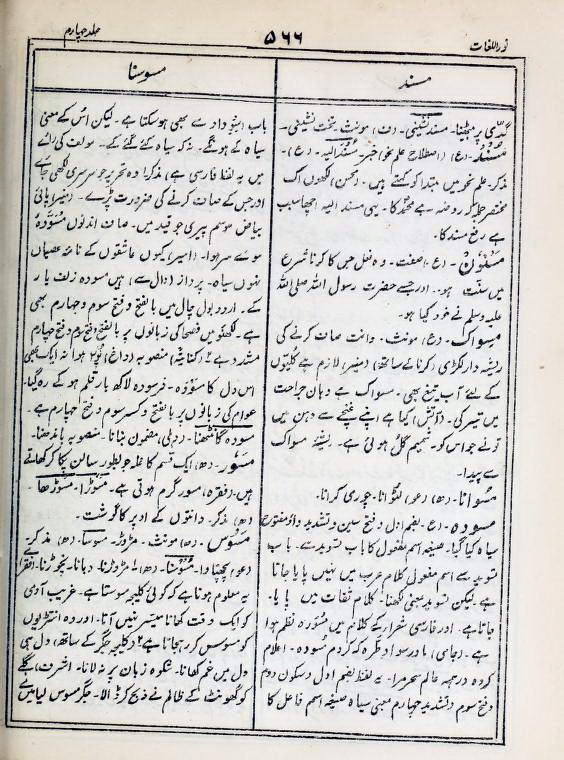 نور اللغات
۵۶۶
جلد چہارم
مسند
گدّی پر بیٹھنا۔ مسند نشینی۔ (ف) مونث۔ تخت نشینی۔
مُسْنَد۔ (ع) (اصطلاح علم نحو) خبر۔ مُسْنَد اِلیہ۔ (ع)۔
مذکر۔ علم نحو میں مبتدا کو کہتے ہیں۔ (محسن) لکھوں اک
ہے رفع مسند کا۔
مسنون۔ (ع) صفت۔ وہ فعل جس کا کرنا شرع
میں سنّت ہو۔ اور جسے حضرت رسول اللہ صلی اللہ
علیہ وسلم نے خود کیا ہو۔
مسواک۔ (ع) مونث۔ دانت صاف کرنے کی
ریشہ دار لکڑی (کرنا کے ساتھ) (منیر) لازم ہے
کے لئے آب تیغ بھی۔ مسواک ہے دہان جراحت
میں تیر کی۔ (آتش) کیا ہے اپنے غنچے سے دہن میں
تونے جو اس کو۔ شمیم گل ہوئی ہے۔ ریشۂ مسواک
سے پیدا۔
مُسوانا۔ (ھ) (عو) لٹوانا۔ چوری کرانا۔
مسودہ۔ (ع۔ بضم اول و فتح سین و تشدید واؤ مفتوح
سیاہ کیا گیا۔ صیغہ اسم مفعول کا باب تسوید سے۔ باب
تسوید سے اسم مفعول کلام عرب میں نہیں پایا جاتا
ہے لیکن تسوید بمعنی لکھنا۔ کلام ثقات میں پایا۔
جاتا ہے۔ اور فارسی شعرا کے کلام میں مسودہ نظم ہوا
ہے۔ (جامی) بادر سواد طرہ کہ کردم سودہ۔ اعلام
کردہ درجہ عالم سحر مرا۔ یہ لفظ بضم اول و سکون دوم
و فتح سوم و تشدید چہارم بمعنی سیاہ صیغہ اسم فاعل کا
مسوسنا
باب داد سے بھی ہو سکتا ہے۔ لیکن اُس کے معنی
سیاہ کے ہونگے۔ نہ کہ سیاہ کئے گئے کے۔ مولف کی رائے
میں یہ لفظ فارسی ہے) مذکر۔ وہ تحریر جو سرسری لکھی جائے
اور جس کے صاف کرنے کی ضرورت پڑے۔ (منیر) پائی
بیاض موسم پیری جو قید میں۔ صاف اندنوں مسودۂ
موئے سر ہوا۔ (اسیر) کیوں عاشقوں کے نامۂ عصیاں
نہوں سیاہ۔ پرداز (دال سے) ہیں مسودہ زلف یار
کے۔ اردو بول چال میں بالفتح و فتح سوم و چہارم بھی
ہے۔ لکھنؤ میں فصحا کی زبانوں پر بالفتح و فتح سوم و فتح چہارم
مشدد ہے ۲ (کنایۃً) منصوبہ (داغ) ہوا نہ ایک بھی
اس دل کا مسودہ۔ فرسودہ لاکھ بار قلم ہو کے رہ گیا۔
عوام کی زبانوں پر بالفتح و کسر سوم و فتح چہارم ہے۔
مسودہ گانٹھنا۔ (دہلی) مضمون بنانا۔ منصوبہ باندھنا۔
مَسُور۔ (ھ) ایک قسم کا غلہ جو بطور سالن پکا کر کھاتے
ہیں۔ (فقرہ) مسور گرم ہوتی ہے۔ مسوڑا۔ مسوڑھا۔
(ھ) مذکر۔ دانتوں کے اوپر کا گوشت۔
مسوس۔ (ھ) مونث۔ مڑوڑ۔ مسوسا۔ (ھ) مذکر۔
(عو) پچھتاوا۔ مسوسنا۔ (ھ) ۱ مڑوڑنا۔ دبانا۔ نچوڑنا۔ (فقرہ)
یہ معلوم ہوتا ہے کہ کوئی کلیجہ مسوستا ہے۔ غریب آدمی
کو ایک وقت کھانا میسر نہیں آتا۔ اور وہ انتڑیوں
کو مسوس کر رہ جاتا ہے ۲ (کلیجہ جگر کے ساتھ) دل ہی
دل میں غم کھانا۔ شکوہ زبان پر نہ لانا۔ (شرف) گلے
کو گھونٹ کے ظالم نے ذبح کر ڈالا۔ جگر مسوس لیا میں نے